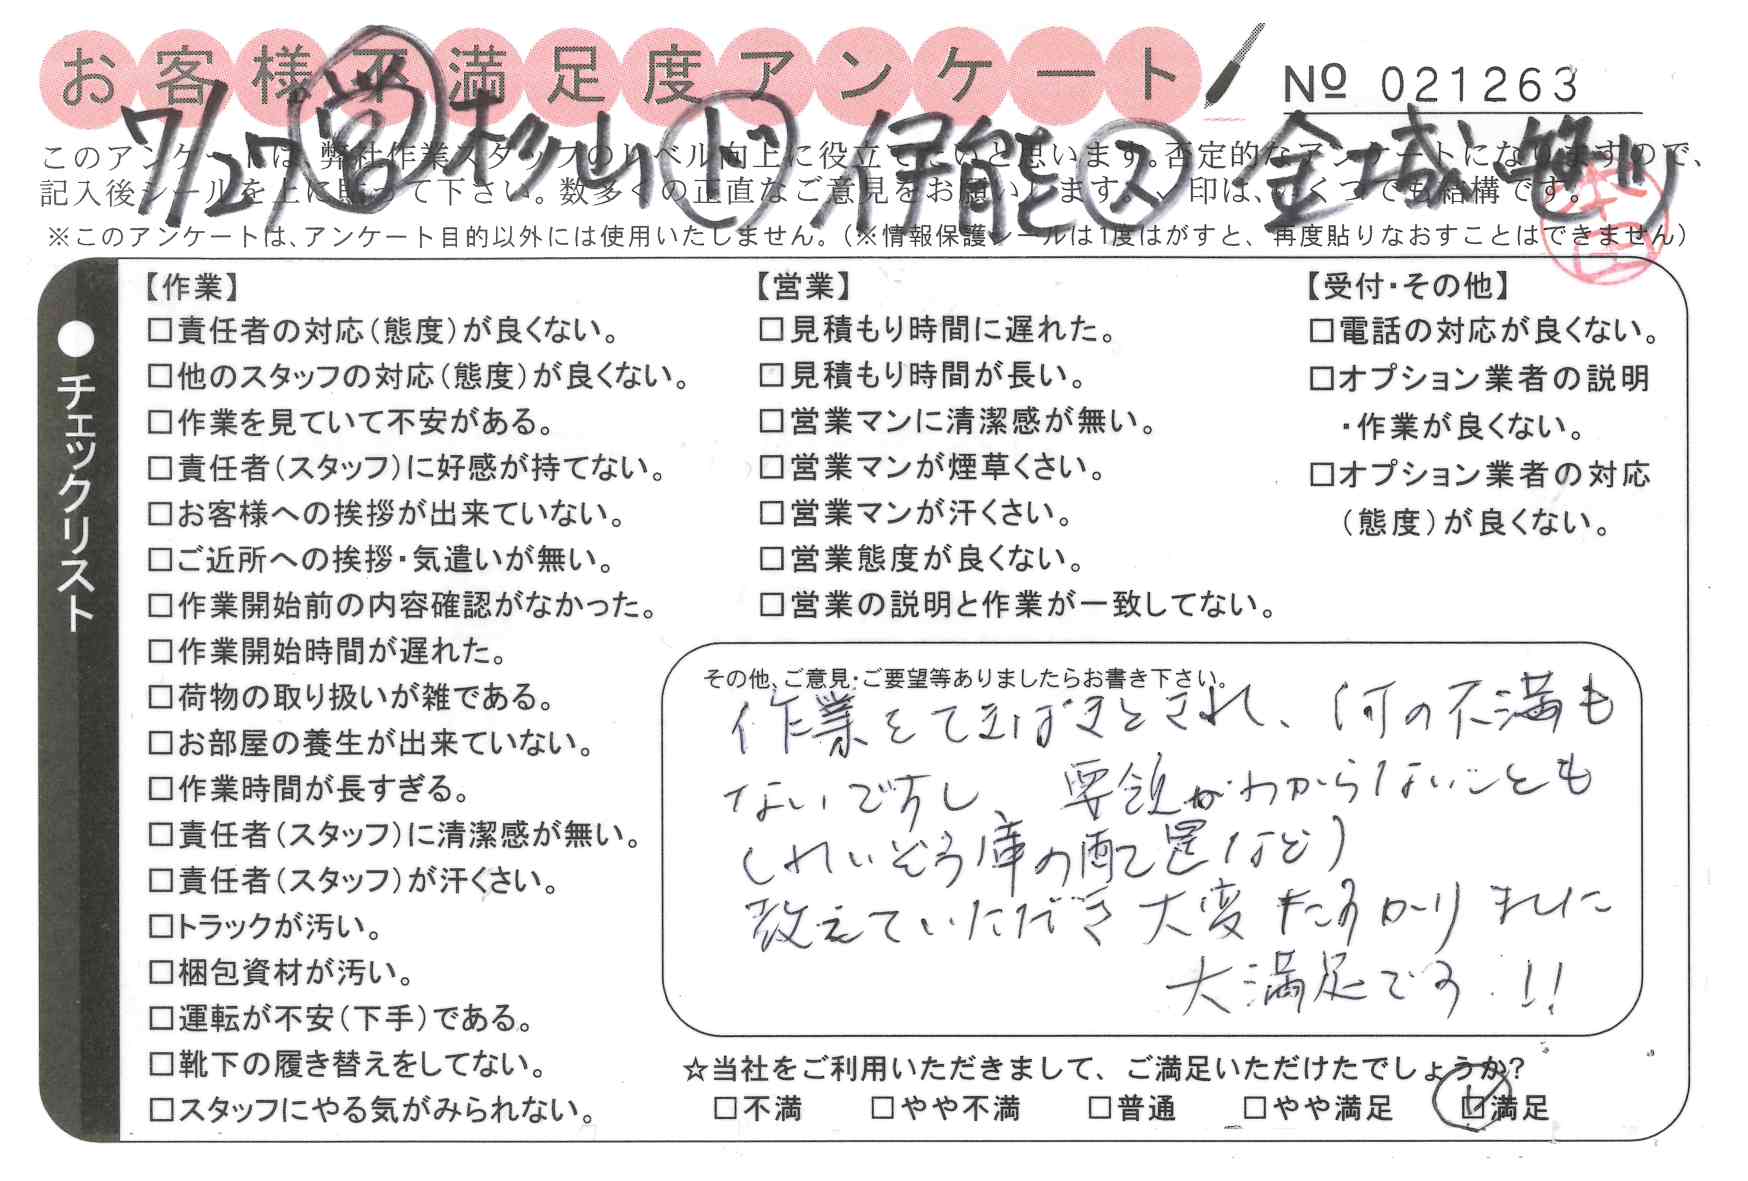 お客様不満足度アンケート
№ 021263
7/27 営 杉山 ド 伊能 ス 金城
このアンケートは、弊社作業スタッフのレベル向上に役立てたいと思います。否定的なアンケートになりますので、
記入後シールを上に貼って下さい。数多くの正直なご意見をお願いします。✓印は、いくつでも結構です。
※このアンケートは、アンケート目的以外には使用いたしません。(※情報保護シールは1度はがすと、再度貼りなおすことはできません)
●チェックリスト
【作業】
□責任者の対応(態度)が良くない。
□他のスタッフの対応(態度)が良くない。
□作業を見ていて不安がある。
□責任者(スタッフ)に好感が持てない。
□お客様への挨拶が出来ていない。
□ご近所への挨拶・気遣いが無い。
□作業開始前の内容確認がなかった。
□作業開始時間が遅れた。
□荷物の取り扱いが雑である。
□お部屋の養生が出来ていない。
□作業時間が長すぎる。
□責任者(スタッフ)に清潔感が無い。
□責任者(スタッフ)が汗くさい。
□トラックが汚い。
□梱包資材が汚い。
□運転が不安(下手)である。
□靴下の履き替えをしてない。
□スタッフにやる気がみられない。
【営業】
□見積もり時間に遅れた。
□見積もり時間が長い。
□営業マンに清潔感が無い。
□営業マンが煙草くさい。
□営業マンが汗くさい。
□営業態度が良くない。
□営業の説明と作業が一致してない。
【受付・その他】
□電話の対応が良くない。
□オプション業者の説明
・作業が良くない。
□オプション業者の対応
(態度)が良くない。
その他、ご意見・ご要望等ありましたらお書き下さい。
作業をてきぱきとされ、何の不満も
ないですし、要領がわからないことも
(れいぞう庫の配置など)
教えていただき大変たすかりました
大満足です!!
☆当社をご利用いただきまして、ご満足いただけたでしょうか?
□不満 □やや不満 □普通 □やや満足 ☑満足